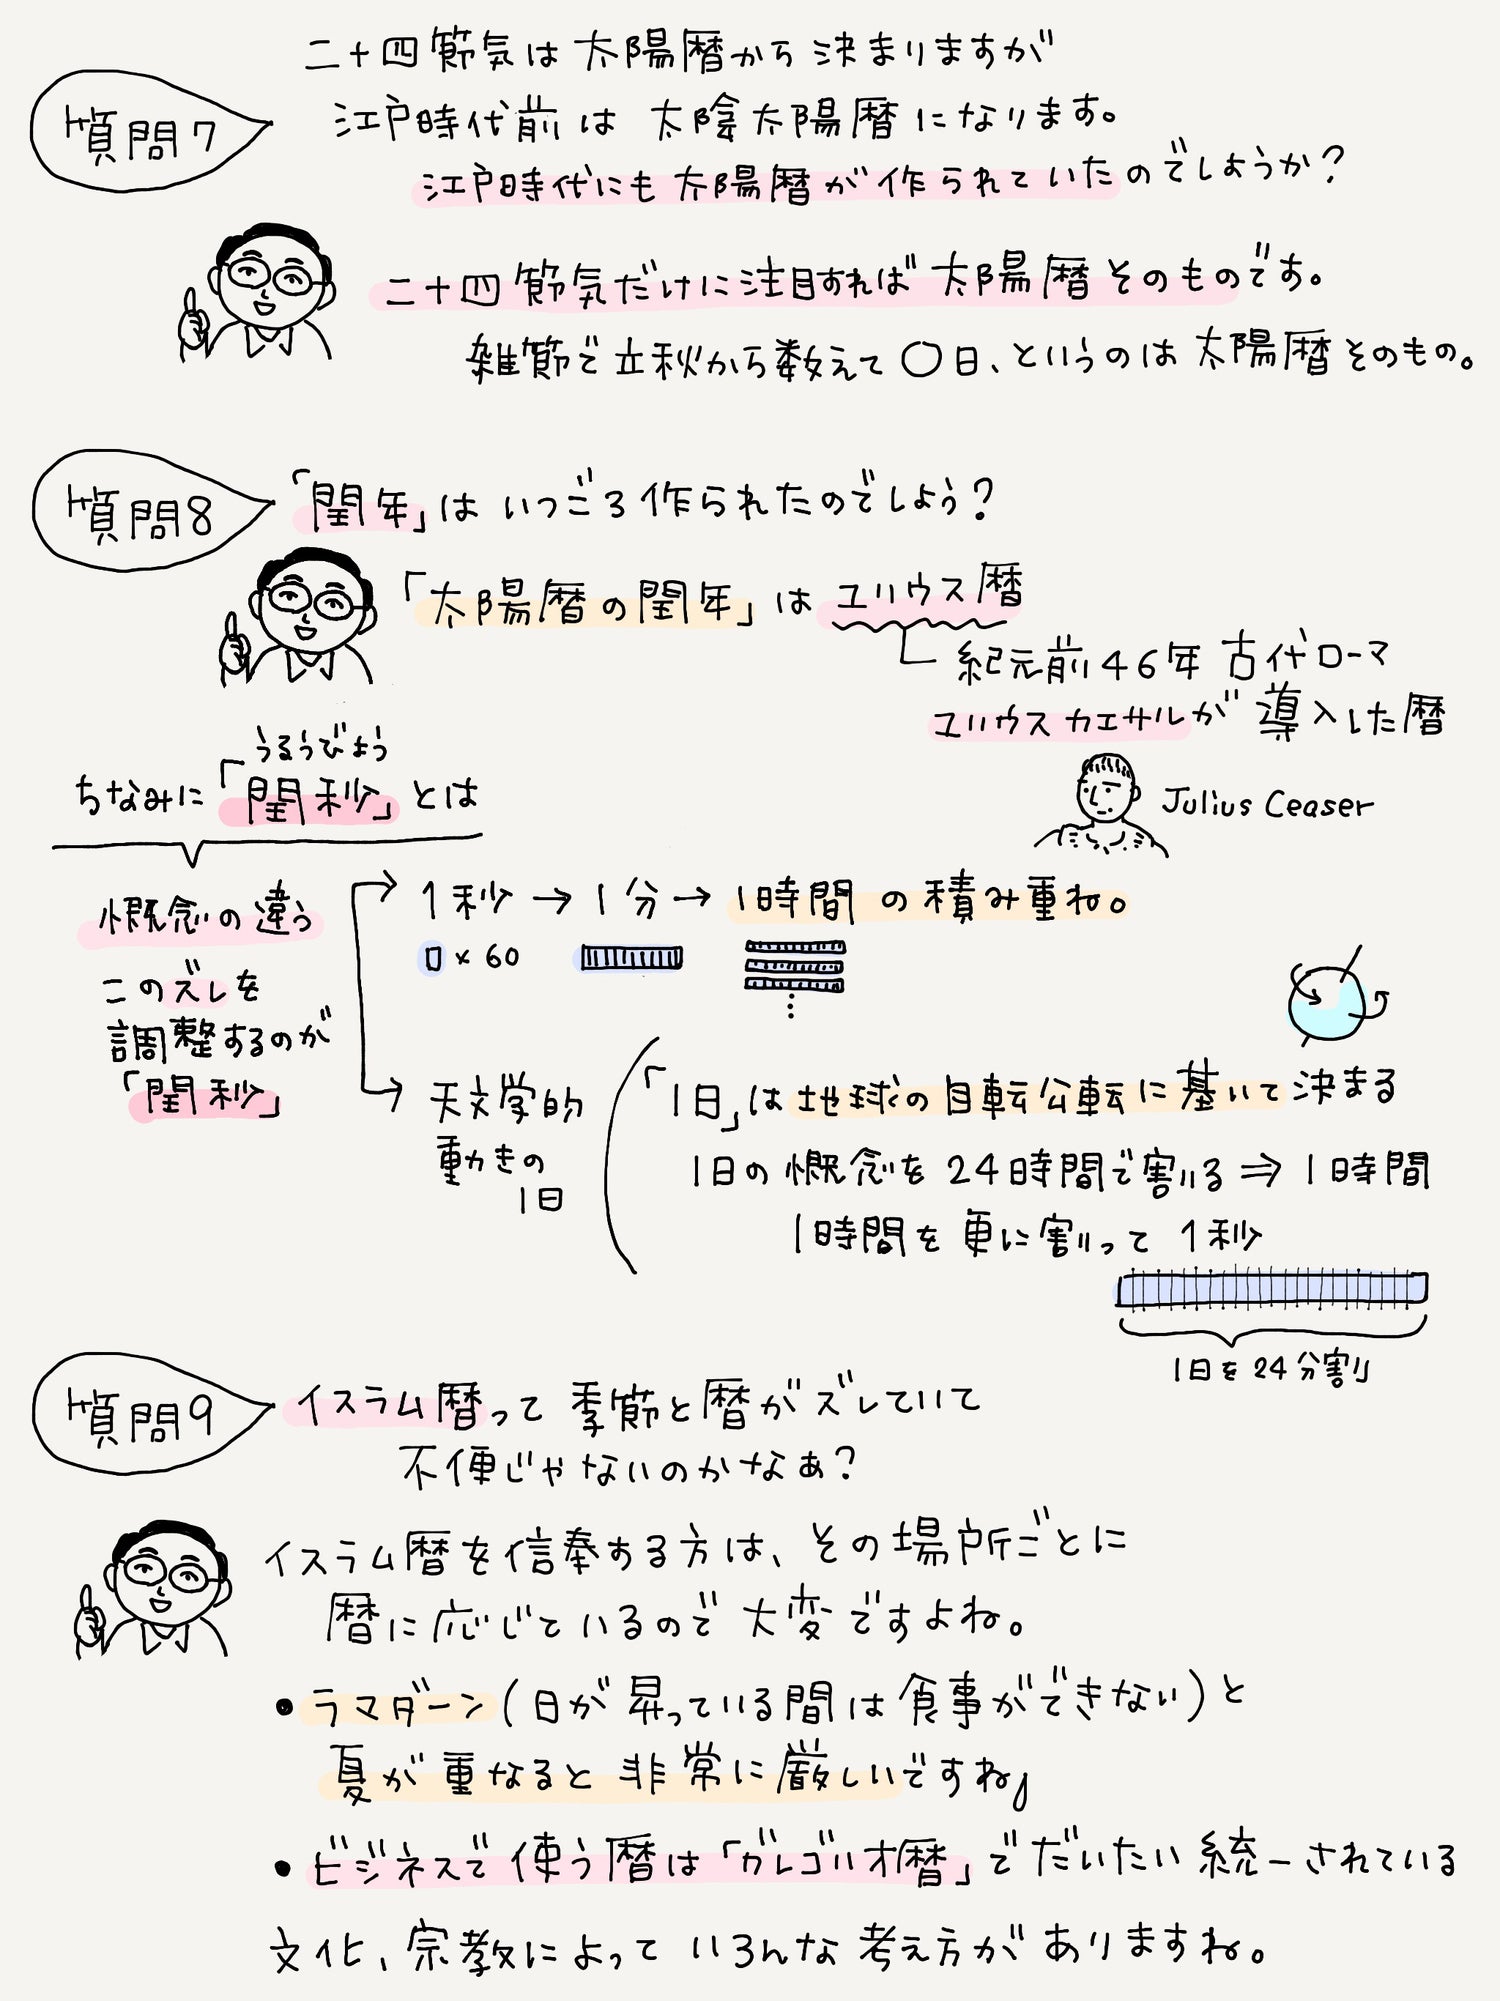 質問7
二十四節気は太陽暦から決まりますが
江戸時代前は 太陰太陽暦になります。
江戸時代にも太陽暦が作られていたのでしょうか?
二十四節気だけに注目すれば 太陽暦そのものです。
雑節で立秋から数えて〇日、というのは太陽暦そのもの。
質問8
「閏年」はいつごろ作られたのでしょう?
「太陽暦の閏年」は ユリウス暦
紀元前46年 古代ローマ
ユリウスカエサルが 導入した暦
Julius Ceaser
うるうびょう
ちなみに「閏秒」とは
概念の違う
このズレを
調整するのが
「閏秒」
1秒→1分→1時間の積み重ね。
×60
天文学的
動きの
1日
「1日」は地球の自転公転に基いて決まる
1日の概念を24時間で割る⇒1時間
1時間を更に割って 1秒
1日を24分割
質問9
イスラム暦って季節と暦がズレていて
不便じゃないのかなぁ?
イスラム暦を信奉する方は、その場所ごとに
暦に応じているので大変ですよね。
・ラマダーン(日が昇っている間は食事ができない)と
夏が重なると非常に厳しいですね」
・ビジネスで使う暦は「グレゴリオ暦」でだいたい統一されている
文化、宗教によっていろんな考え方がありますね。